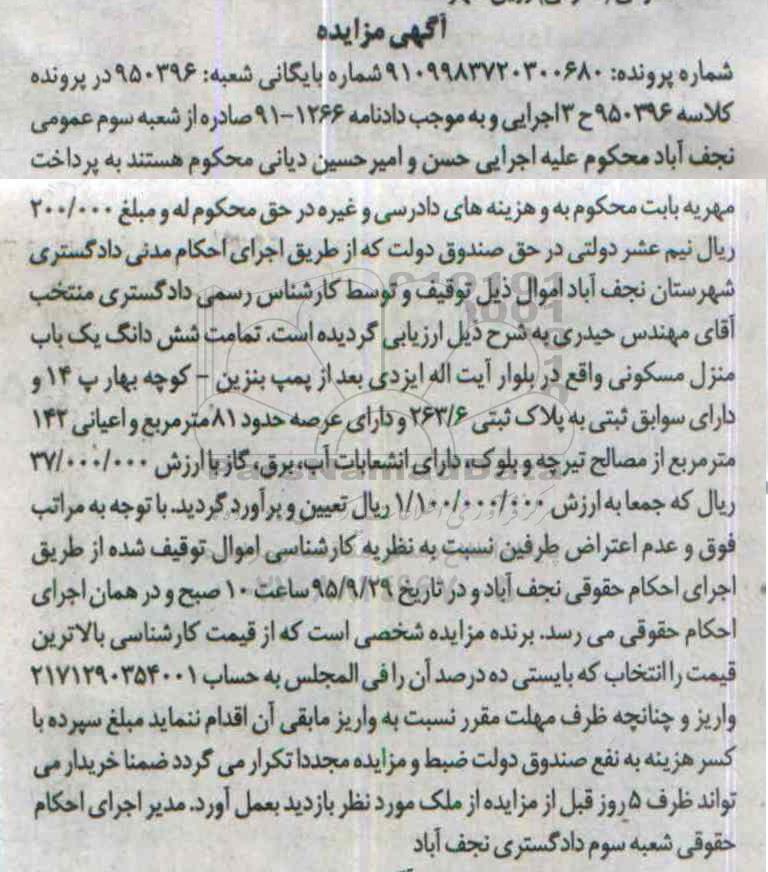 آگهی مزایده
شماره پرونده: ۹۱۰۹۹۸۳۷۲۰۳۰۰۶۸۰ شماره بایگانی شعبه: ۹۵۰۳۹۶ در پرونده
کلاسه ۹۵۰۳۹۶ ح ۳ اجرایی و به موجب دادنامه ۱۲۶۶-۹۱ صادره از شعبه سوم عمومی
نجف آباد محکوم علیه اجرایی حسن و امیرحسین دیانی محکوم هستند به پرداخت
مهریه بابت محکوم به و هزینه های دادرسی و غیره در حق محکوم له و مبلغ ۲۰۰/۰۰۰
ریال نیم عشر دولتی در حق صندوق دولت که از طریق اجرای احکام مدنی دادگستری
شهرستان نجف آباد اموال ذیل توقیف و توسط کارشناس رسمی دادگستری منتخب
آقای مهندس حیدری به شرح ذیل ارزیابی گردیده است. تمامت شش دانگ یک باب
منزل مسکونی واقع در بلوار آیت اله ایزدی بعد از پمپ بنزین - کوچه بهار پ ۱۴ و
دارای سوابق ثبتی به پلاک ثبتی ۲۶۳/۶ و دارای عرصه حدود ۸۱ مترمربع و اعیانی ۱۴۲
مترمربع از مصالح تیرچه و بلوک، دارای انشعابات آب، برق، گاز با ارزش ۳۷/۰۰۰/۰۰۰
ریال که جمعا به ارزش ۱/۱۰۰/۰۰۰/۰۰۰ ریال تعیین و برآورد گردید. با توجه به مراتب
فوق و عدم اعتراض طرفین نسبت به نظریه کارشناسی اموال توقیف شده از طریق
اجرای احکام حقوقی نجف آباد و در تاریخ ۹۵/۹/۲۹ ساعت ۱۰ صبح و در همان اجرای
احکام حقوقی می رسد. برنده مزایده شخصی است که از قیمت کارشناسی بالاترین
قیمت را انتخاب که بایستی ده درصد آن را فی المجلس به حساب ۲۱۷۱۲۹۰۳۵۴۰۰۱
واریز و چنانچه ظرف مهلت مقرر نسبت به واریز مابقی آن اقدام ننماید مبلغ سپرده با
کسر هزینه به نفع صندوق دولت ضبط و مزایده مجددا تکرار می گردد ضمنا خریدار می
تواند ظرف ۵ روز قبل از مزایده از ملک مورد نظر بازدید بعمل آورد. مدیر اجرای احکام
حقوقی شعبه سوم دادگستری نجف آباد